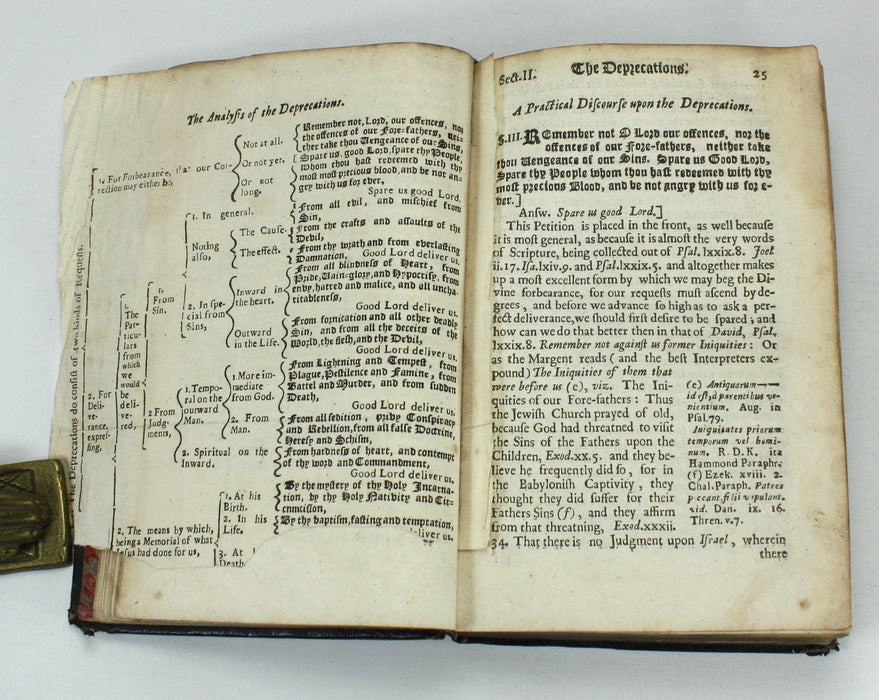 The Analysis of the Deprecations.
The Deprecations do consist of two kinds of Requests.
1. For Forbearance, that our Cor-
rection may either be,
Not at all.
Remember not, Lord, our offences, nor
the offences of our Fore-fathers, nei-
ther take thou Vengeance of our Sins,
Or not yet.
Spare us, good Lord, spare thy People,
whom thou hast redeemed with thy
Or not
long.
most precious blood, and be not an-
gry with us for ever,
Spare us good Lord.
2. For
Deli-
ve-
rance,
expres-
sing,
1.
The
Par-
ticu-
lars
from
which
we
would
be
deli-
ve-
red,
1.
From
Sin,
1. In general.
From all evil, and mischief from
Sin,
Noting
also,
The Cause.
From the crafts and assaults of the
Devil,
The effect.
From thy wrath and from everlasting
Damnation, Good Lord deliver us.
2. In spe-
cial from
Sins,
Inward in
the heart.
From all blindness of Heart, from
Pride, Vain-glory, and Hypocrisy, from
envy, hatred and malice, and all uncha-
ritableness,
Good Lord deliver us.
Outward
in the Life.
From fornication and all other deadly
Sin, and from all the deceits of the
World, the flesh, and the Devil,
Good Lord deliver us.
2 From
Judg-
ments,
1. Tempo-
ral on the
outward
Man.
1. More im-
mediate
from God.
From Lightning and Tempest, from
Plague, Pestilence and Famine, from
Battel and Murder, and from sudden
Death,
Good Lord deliver us.
2. From
Man.
From all sedition, privy Conspiracy
and Rebellion, from all false Doctrine,
Heresy and Schism,
2. Spiritual on the
Inward.
From hardness of heart, and contempt
of thy word and Commandment,
Good Lord deliver us.
2. The means by which,
being a Memorial of what
Jesus had done for us,
1. At his
Birth.
By the mystery of thy Holy Incarna-
tion, by thy Holy Nativity and Cir-
cumcision,
2. In his
Life.
By thy baptism, fasting and temptation,
deliver us.
3. At
Death
Sect. II. The Deprecations. 25
A Practical Discourse upon the Deprecations.
§. III. REmember not O Lord our offences, nor the
offences of our Fore-fathers, neither take
thou Vengeance of our Sins. Spare us Good Lord,
Spare thy People whom thou hast redeemed with thy
most precious Blood, and be not angry with us for e-
ver.]
Answ. Spare us good Lord.]
This Petition is placed in the front, as well because
it is most general, as because it is almost the very words
of Scripture, being collected out of Psal. lxxix. 8. Joel
ii. 17. Isa. lxiv. 9. and Psal. lxxix. 5. and altogether makes
up a most excellent form by which we may beg the Di-
vine forbearance, for our requests must ascend by de-
grees, and before we advance so high as to ask a per-
fect deliverance, we should first desire to be spared; and
how can we do that better then in that of David, Psal.
lxxix. 8. Remember not against us former Iniquities: Or
as the Margent reads (and the best Interpreters ex-
pound) The Iniquities of them that
were before us (e), viz. The Ini-
quities of our Fore-fathers: Thus
the Jewish Church prayed of old,
because God had threatned to visit
the Sins of the Fathers upon the
Children, Exod. xx. 5. and they be-
lieve he frequently did so, for in
the Babylonish Captivity, they
thought they did suffer for their
Fathers Sins (f), and they affirm
from that threatning, Exod. xxxii.
34. That there is no Judgment upon Israel, wherein
there
(e) Antiquarum—
id est, à parentibus ve-
nientium. Aug. in
Psal. 79.
Iniquitates priorum
temporum vel homi-
num. R. D. K. ita
Hammond Paraphr.
(f) Ezek. xviii. 2.
Chal. Paraph. Patres
peccant filii vapulant.
vid. Dan. ix. 16.
Thren. v. 7.